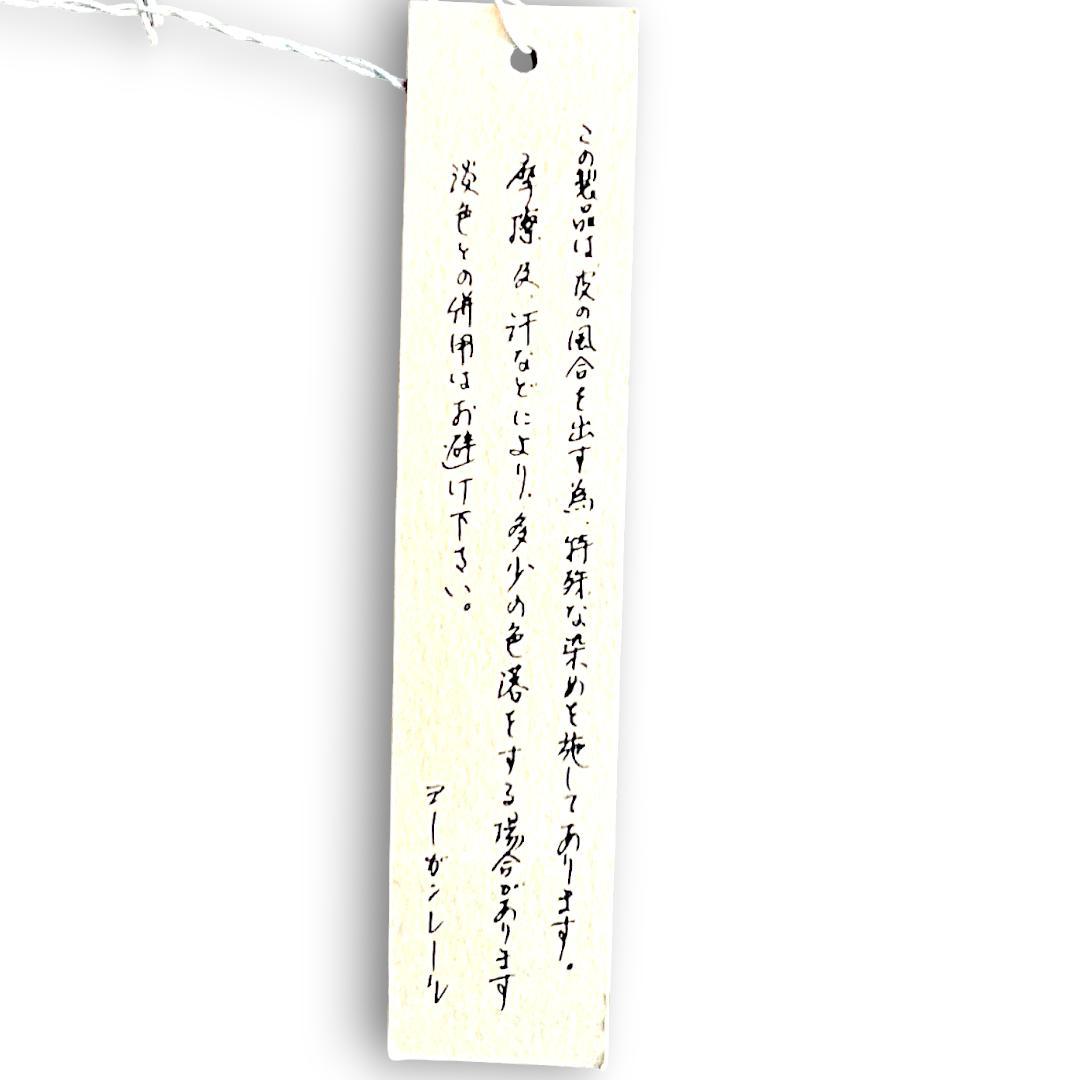 この製品は、皮の風合を出す為、特殊な染めを施してあります。
摩擦及、汗などにより、多少の色落をする場合があります
淡色との併用はお避け下さい。
ヨーガンレール